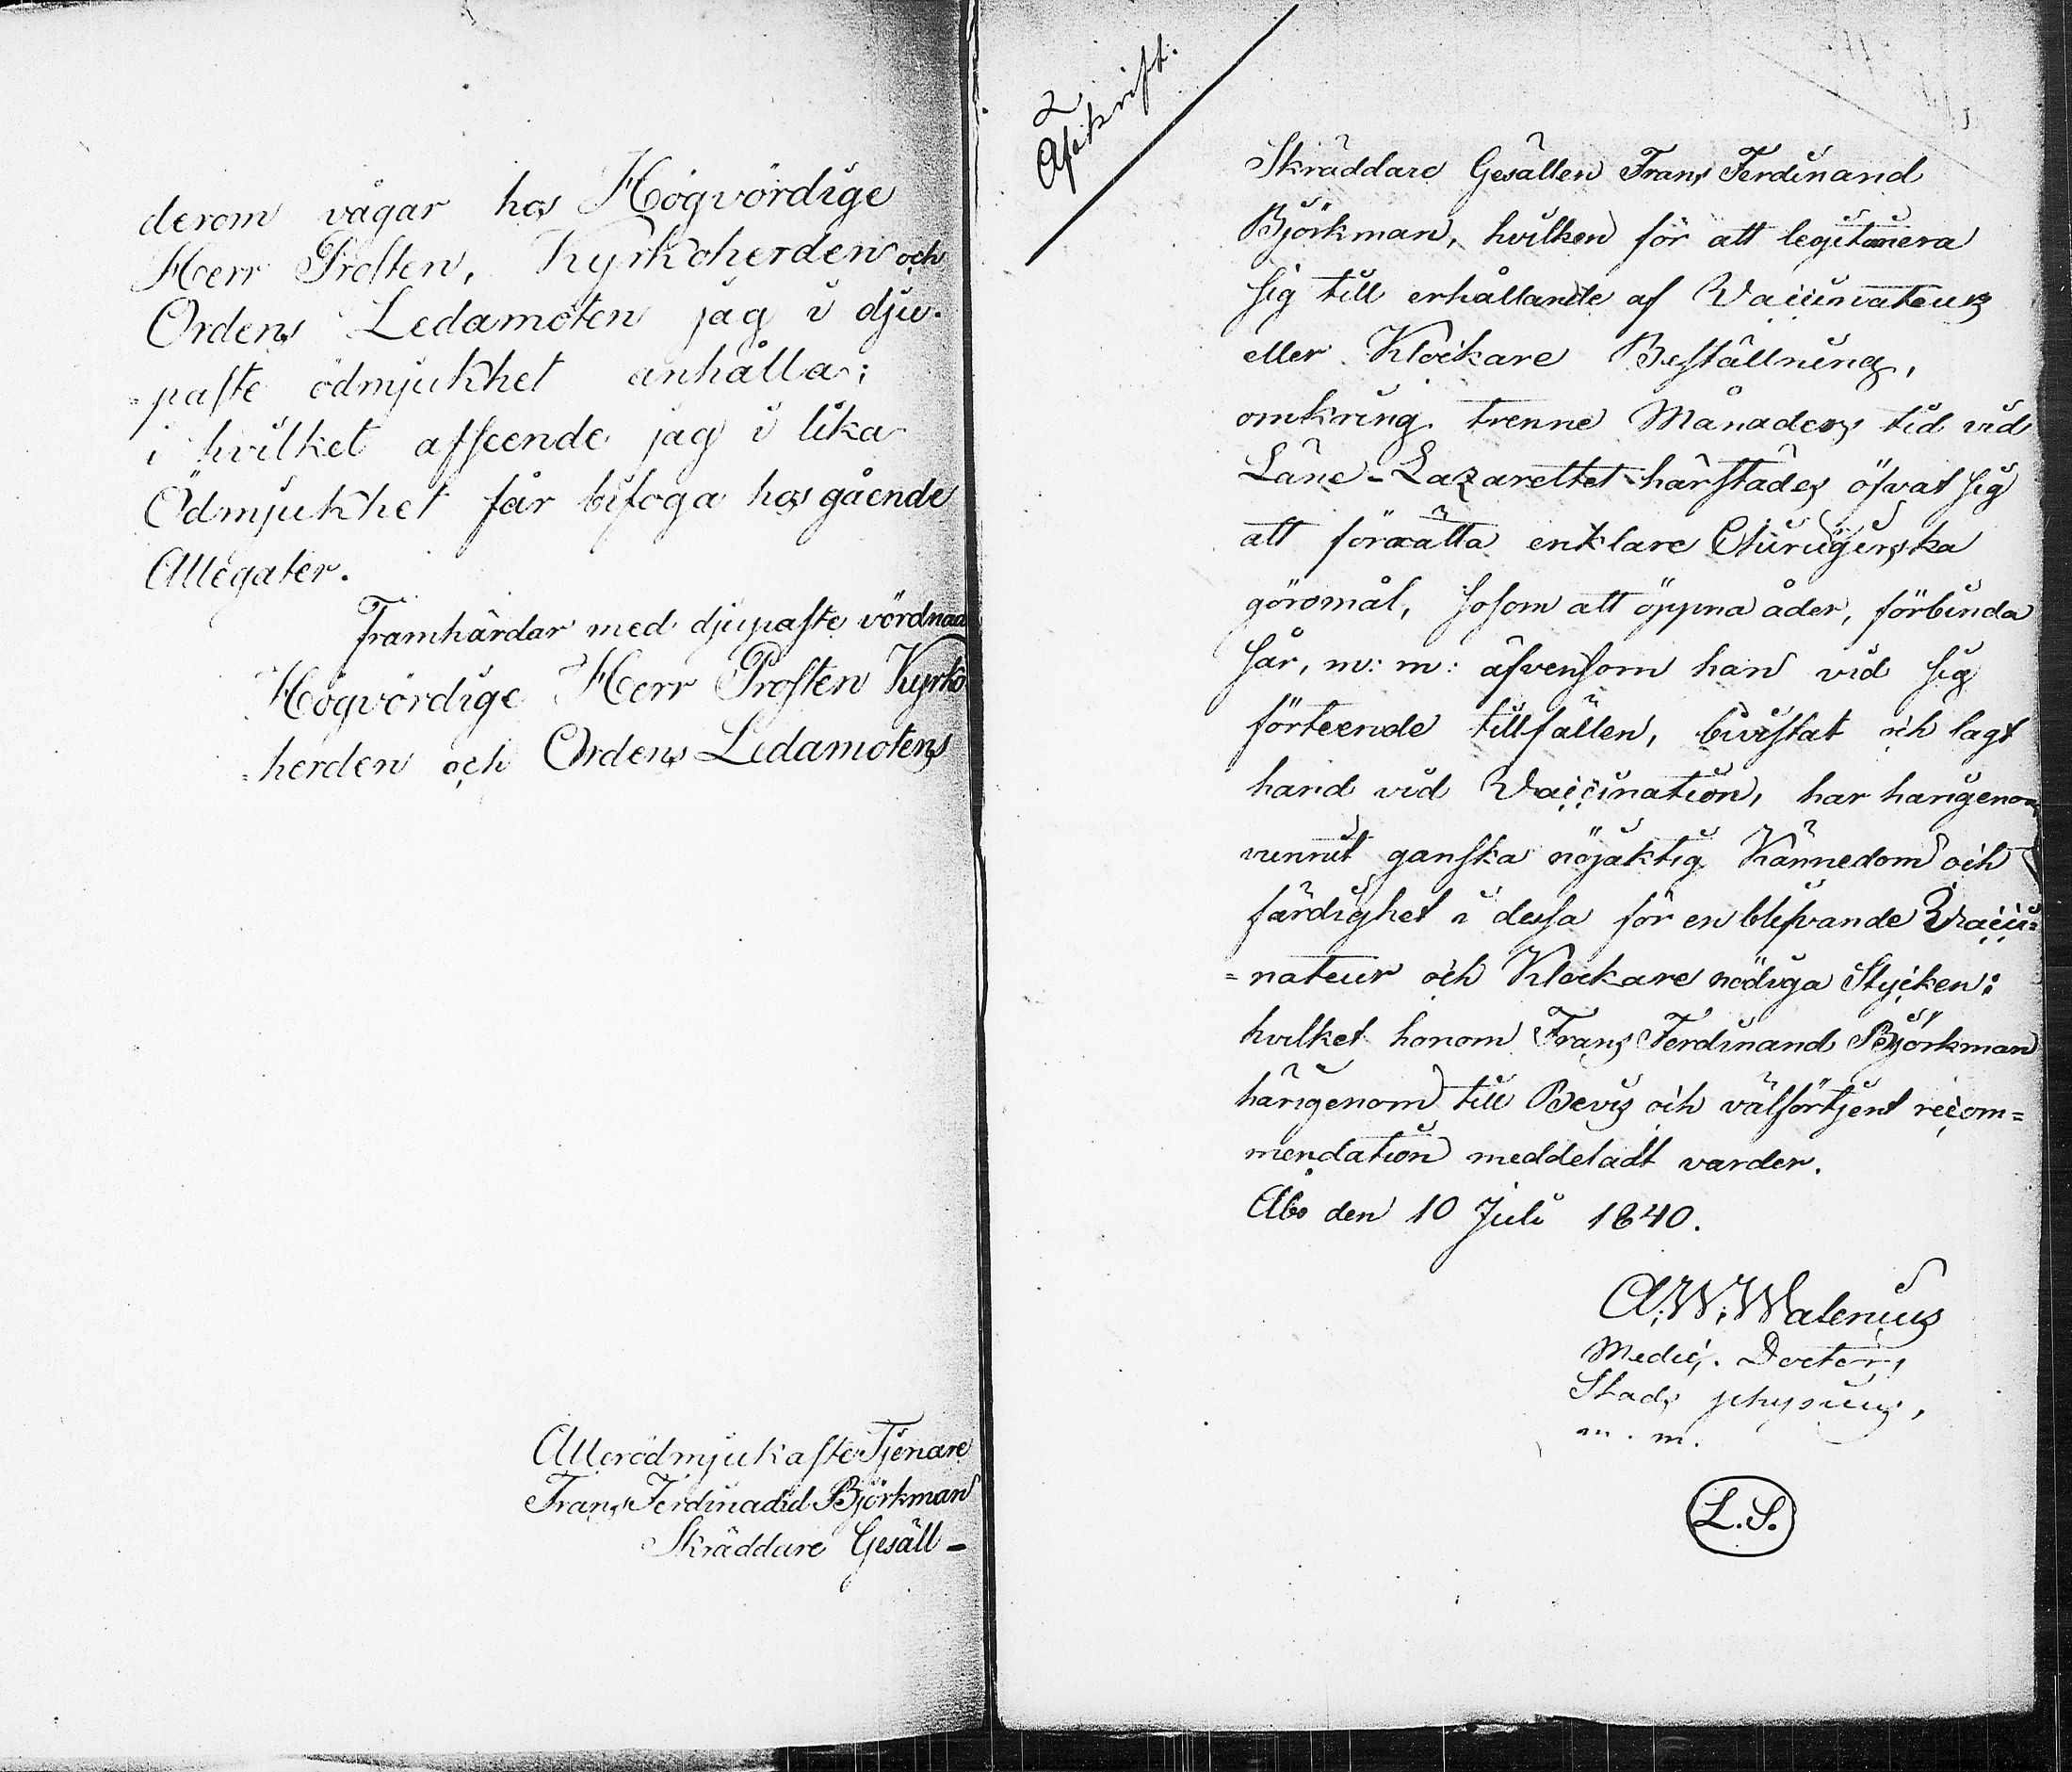 derom vågar hos Högvördige
Herr Prosten, Kyrkoherden och
Ordens Ledamoten jag i dju-
paste ödmjukhet anhålla;
i hvilket afseende jag i lika
Ödmjukhet får bifoga hos gående
Allegater.
Framhärdar med djupaste vördnad
Högvördige Herr Prosten Kyrko
herden och Ordens Ledamotens
Allerödmjukaste Tjenare
Frans Ferdinadid Björkman
Skräddare Gesäll -
2
Afskrift.
Skräddare Gesällen Frans Ferdinand
Björkman, hvilken för att legitimera
sig till erhållande af Vaccinateurs
eller Klockare Beställning,
omkring trenne Månaders tid vid
Läne-Lazarettet härstädes öfvat sig
att förrätta enklare Chirurgiska
göromål, såsom att öppna åder, förbinda
sår, m: m: äfvensom han vid sig
förteende tillfällen, bivistat och lagt
hand vid Vaccination, har härigenom
vunnit ganska nöjaktig Kännedom och
färdighet i dessa för en blifvande Vacci=
=nateur och Klockare nödiga Stycken:
hvilket honom Frans Ferdinand Björkman
härigenom till Bevis och välförtjent recom=
mendation meddeladt varder.
Åbo den 10 Juli 1840.
A. W. Walenius
Medic. Doctor,
Stads physicus,
m. m.
L.S.